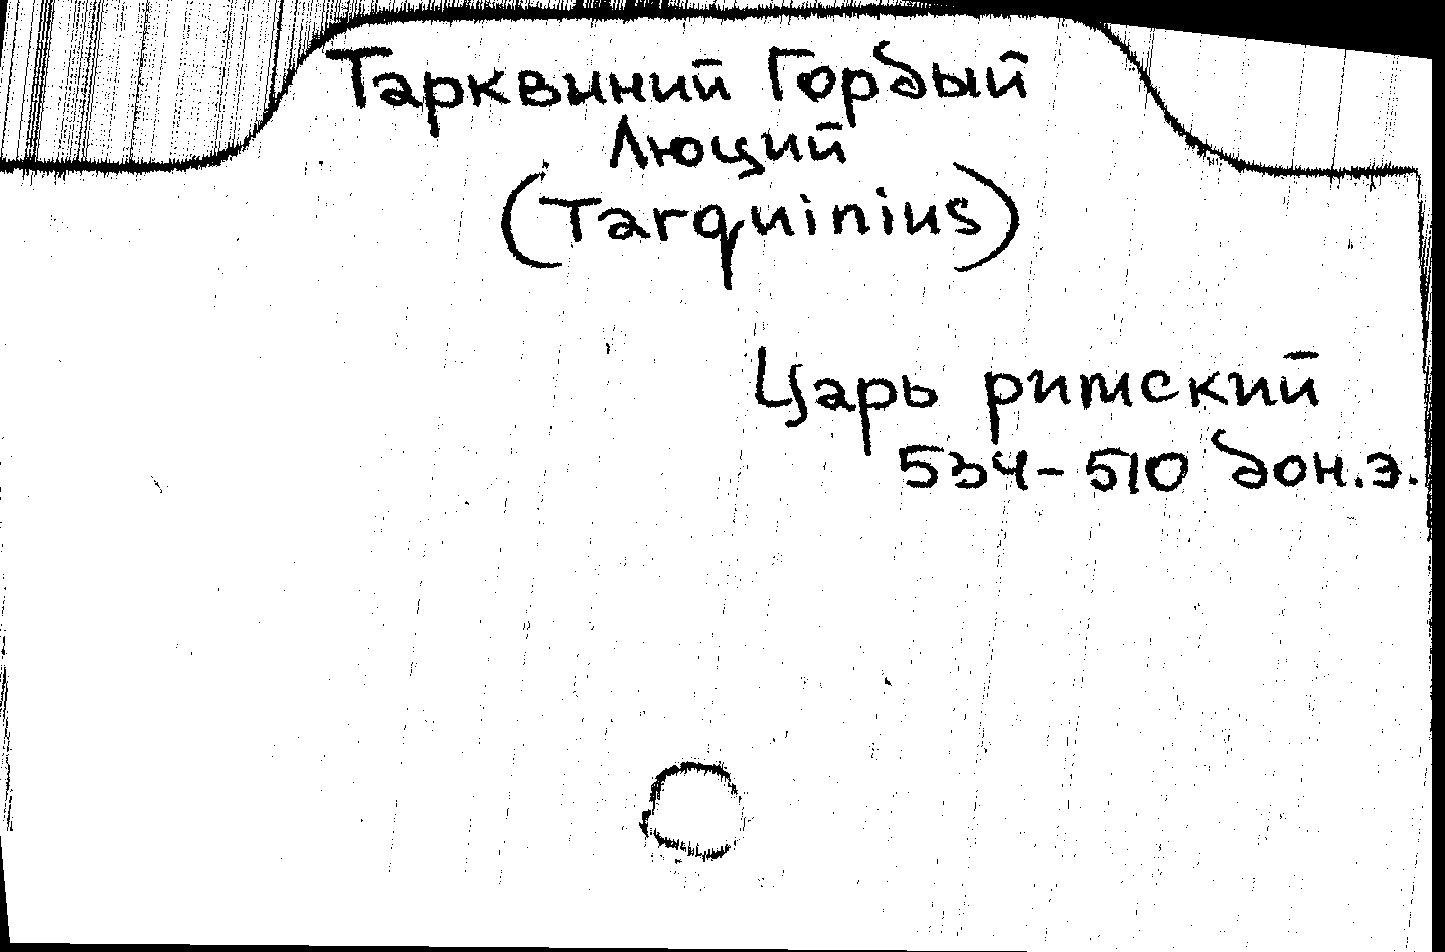 Тарквиний Гордый
Люций
(Tarquinius)
Царь римский
534-510 до н.э.